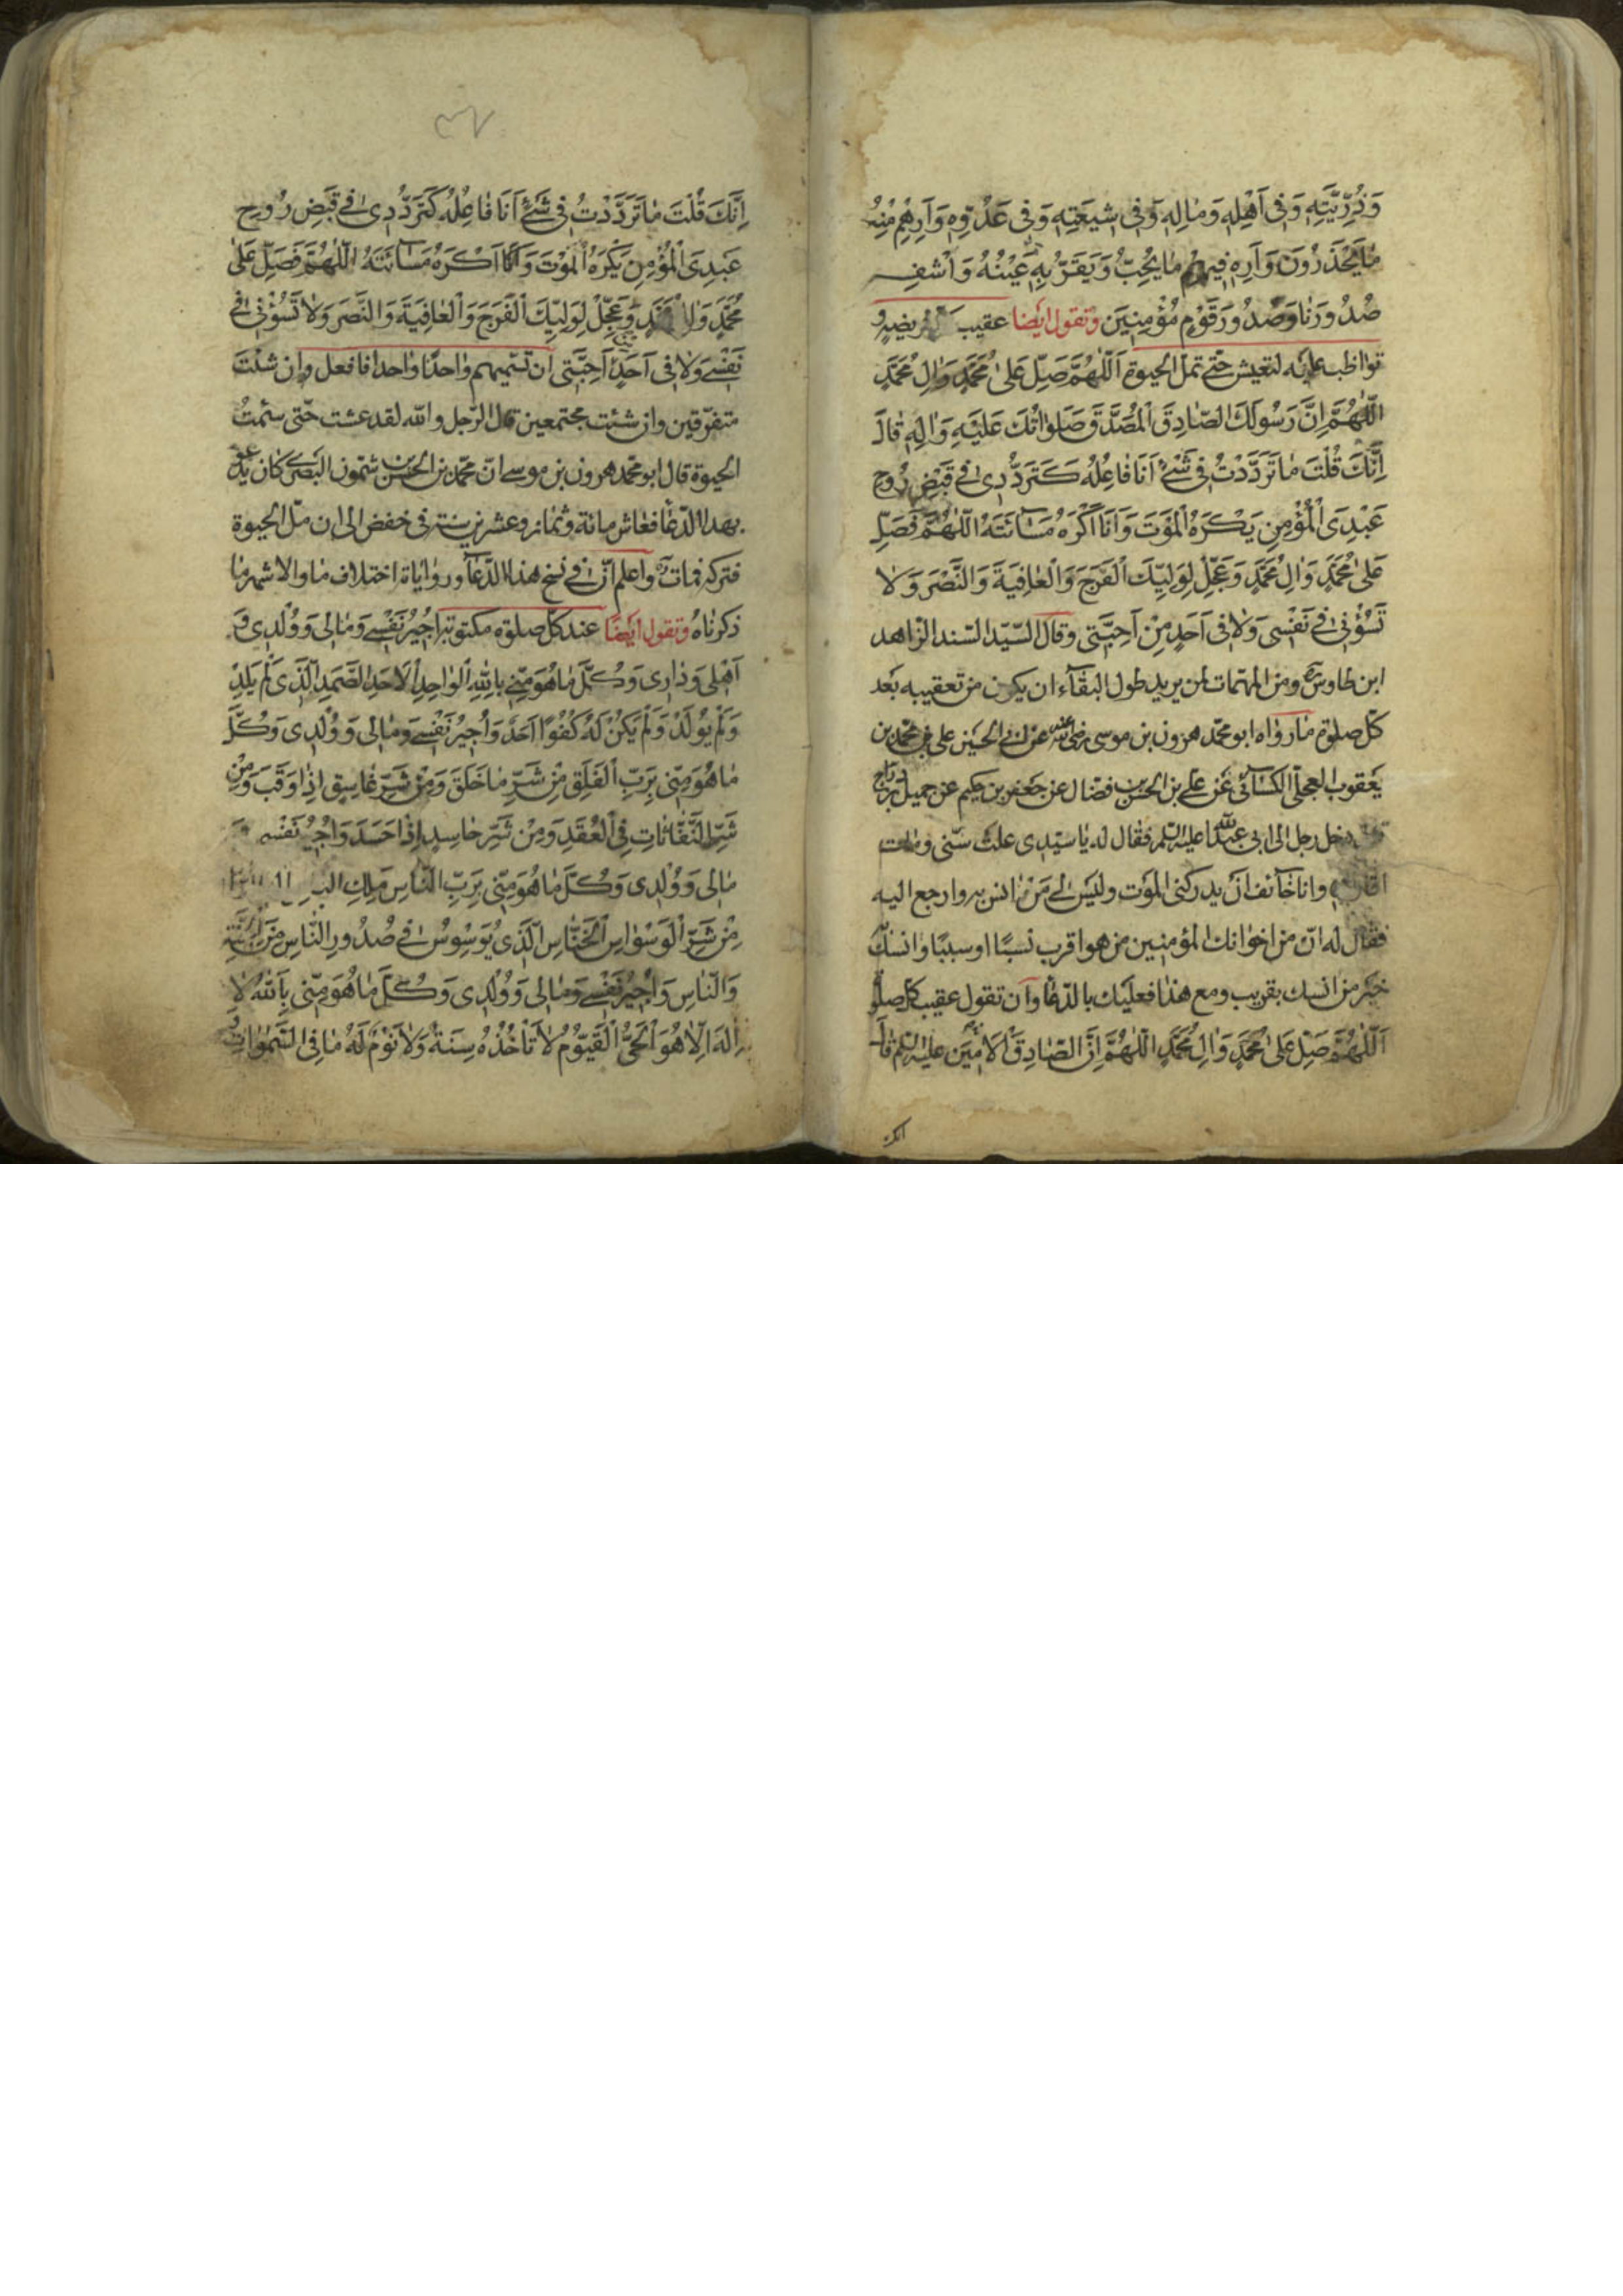 وَذُرِّيَّتِهِ وَفِى اَهْلِهِ وَمٰالِهِ وَفِى شِيعَتِهِ وَفِى عَدُوِّهِ وَاَرِهِمْ مِنْهُ
مٰا يَحْذَرُونَ وَاَرِهِ فِيهِمْ مٰا يُحِبُّ وَيَقَرُّ بِهِ عَيْنُهُ وَاشْفِ
صُدُورَنٰا وَصُدُورَ قَوْمٍ مُؤْمِنِينَ وتقول ايضا عقيب فريضة و
تواظب عليه لتعيش حتّى تملّ الحيوة اَللّٰهُمَّ صَلِّ عَلىٰ مُحَمَّدٍ وَاٰلِ مُحَمَّدٍ
اَللّٰهُمَّ اِنَّ رَسُولَكَ الصّٰادِقَ الْمُصَدَّقَ صَلَوٰاتُكَ عَلَيْهِ وَاٰلِهِ قٰالَ
اِنَّكَ قُلْتَ مٰا تَرَدَّدْتُ فِى شَىْءٍ اَنَا فٰاعِلُهُ كَتَرَدُّدِى فِى قَبْضِ رُوحِ
عَبْدِىَ الْمُؤْمِنِ يَكْرَهُ الْمَوْتَ وَاَنَا اَكْرَهُ مَسٰائَتَهُ اَللّٰهُمَّ فَصَلِّ
عَلىٰ مُحَمَّدٍ وَاٰلِ مُحَمَّدٍ وَعَجِّلْ لِوَلِيِّكَ الْفَرَجَ وَالْعٰافِيَةَ وَالنَّصْرَ وَلٰا
تَسُؤْنِى فِى نَفْسِى وَلٰا فِى اَحَدٍ مِنْ اَحِبَّتِى وقال السّيّد السّند الزّاهد
ابن طاوس ره ومن المهمّات لمن يريد طول البقآء ان يكون من تعقيبه بعد
كلّ صلوة ما رواه ابو محمّد هرون بن موسى رضى الله عنه عن ابى الحسين على بن محمّد بن
يعقوب العجلى الكسآئى عن على بن الحسن بن فضّال عن جعفر بن حكيم عن جميل بن درّاج
دخل رجل الى ابى عبد الله عليه السلم فقال له يا سيّدى علت سنّى ومات
اقاربى وانا خآئف ان يدركنى الموت وليس لى من انس به وارجع اليه
فقال له انّ من اخوانك المؤمنين من هو اقرب نسبًا او سببًا وانسك به
خير من انسك بقريب ومع هذا فعليك بالدّعا وان تقول عقيب كل صلوة
اَللّٰهُمَّ صَلِّ عَلىٰ مُحَمَّدٍ وَاٰلِ مُحَمَّدٍ اَللّٰهُمَّ اِنَّ الصّٰادِقَ الْاَمِينَ عليه السلم قٰالَ
انك
٣٧
اِنَّكَ قُلْتَ مٰا تَرَدَّدْتُ فِى شَىْءٍ اَنَا فٰاعِلُهُ كَتَرَدُّدِى فِى قَبْضِ رُوحِ
عَبْدِىَ الْمُؤْمِنِ يَكْرَهُ الْمَوْتَ وَاَنَا اَكْرَهُ مَسٰائَتَهُ اَللّٰهُمَّ فَصَلِّ عَلىٰ
مُحَمَّدٍ وَاٰلِ مُحَمَّدٍ وَعَجِّلْ لِوَلِيِّكَ الْفَرَجَ وَالْعٰافِيَةَ وَالنَّصْرَ وَلٰا تَسُؤْنِى فِى
نَفْسِى وَلٰا فِى اَحَدٍ مِنْ اَحِبَّتِى ان تسمّيهم واحدًا واحدًا فافعل وان شئت
متفرّقين وان شئت مجتمعين قال الرّجل والله لقد عشت حتّى سئمت
الحيوة قال ابو محمّد هرون بن موسى انّ محمّد بن الحسن بن شمّون البصرى كان يدعو
بهذا الدّعا فعاش مائة وثمان وعشرين سنة فى خفض الى ان ملّ الحيوة
فتركه فمات ره واعلم انّ فى نسخ هذا الدّعآء ورواياته اختلاف ما والاشهر ما
ذكرناه وتقول ايضًا عند كلّ صلوة مكتوبة اُجِيرُ نَفْسِى وَمٰالِى وَوُلْدِى وَ
اَهْلِى وَدٰارِى وَكُلَّ مٰا هُوَ مِنِّى بِاللّٰهِ الْوٰاحِدِ الْاَحَدِ الصَّمَدِ الَّذِى لَمْ يَلِدْ
وَلَمْ يُولَدْ وَلَمْ يَكُنْ لَهُ كُفُوًا اَحَدٌ وَاُجِيرُ نَفْسِى وَمٰالِى وَوُلْدِى وَكُلَّ
مٰا هُوَ مِنِّى بِرَبِّ الْفَلَقِ مِنْ شَرِّ مٰا خَلَقَ وَمِنْ شَرِّ غٰاسِقٍ اِذٰا وَقَبَ وَمِنْ
شَرِّ النَّفّٰاثٰاتِ فِى الْعُقَدِ وَمِنْ شَرِّ حٰاسِدٍ اِذٰا حَسَدَ وَاُجِيرُ نَفْسِى وَ
مٰالِى وَوُلْدِى وَكُلَّ مٰا هُوَ مِنِّى بِرَبِّ النّٰاسِ مَلِكِ
مِنْ شَرِّ الْوَسْوٰاسِ الْخَنّٰاسِ الَّذِى يُوَسْوِسُ فِى صُدُورِ النّٰاسِ مِنَ الْجِنَّةِ
وَالنّٰاسِ وَاُجِيرُ نَفْسِى وَمٰالِى وَوُلْدِى وَكُلَّ مٰا هُوَ مِنِّى بِاللّٰهِ لٰا
اِلٰهَ اِلّٰا هُوَ الْحَىُّ الْقَيُّومُ لٰا تَأْخُذُهُ سِنَةٌ وَلٰا نَوْمٌ لَهُ مٰا فِى السَّمٰوٰاتِ